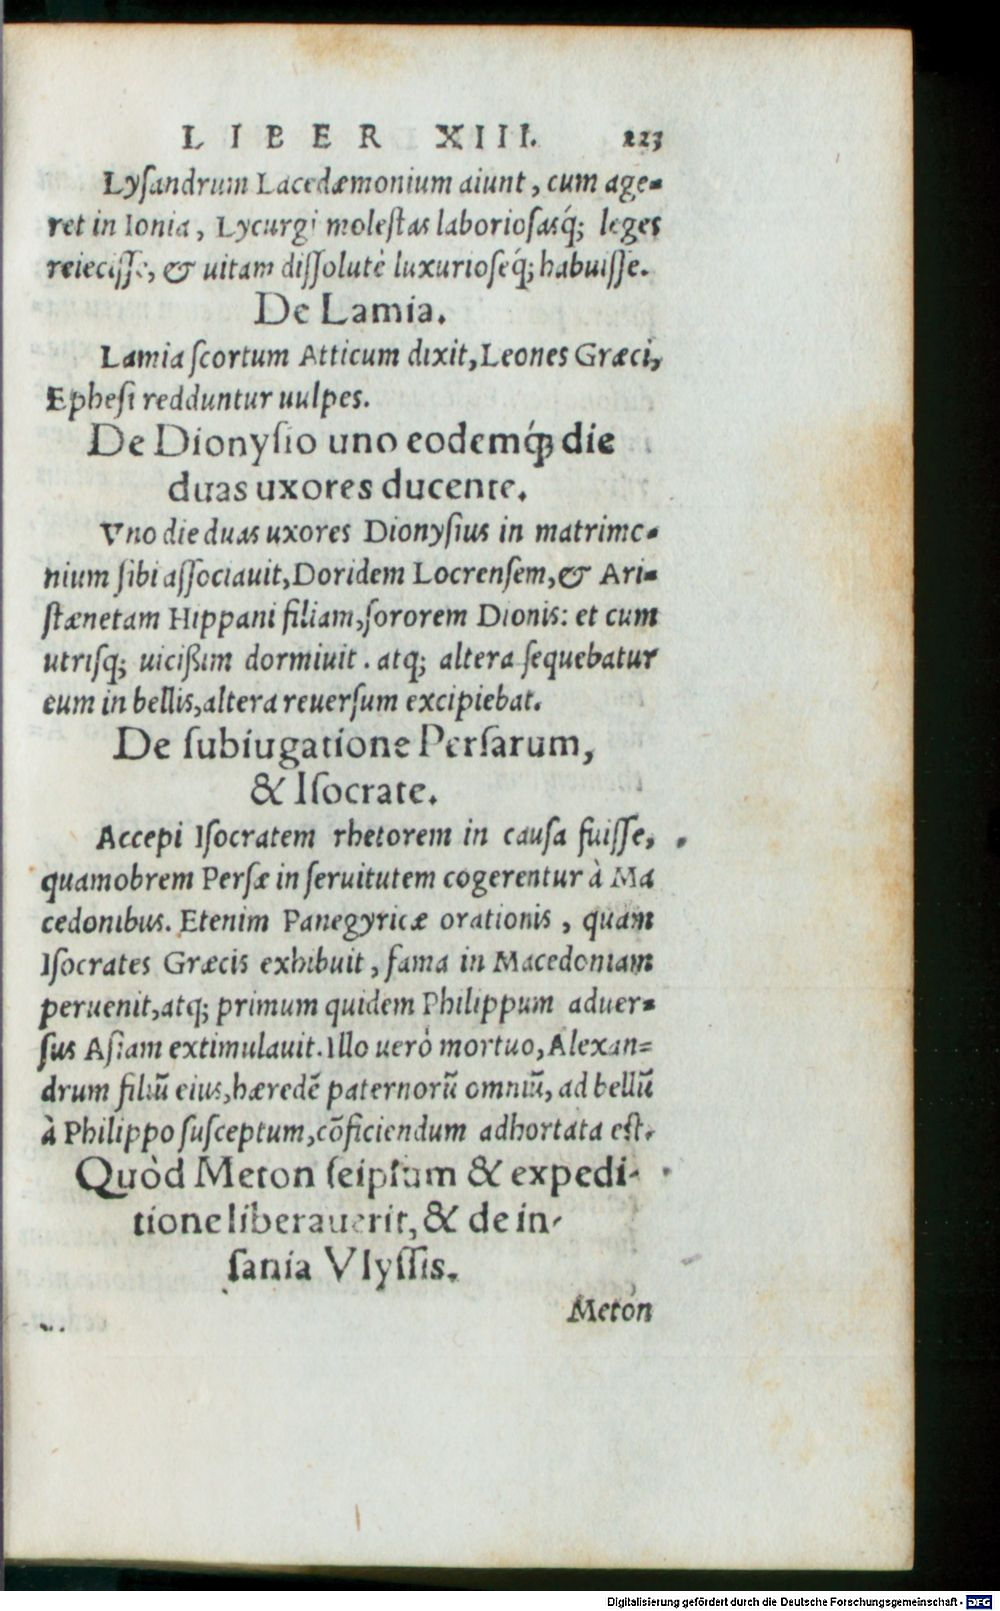 LIBER XIII. 223
Lyſandrum Lacedæmonium aiunt, cum age-
ret in Ionia, Lycurgi moleſtas laborioſasq́; leges
reieciſſe, & uitam diſſolutè luxurioſeq́; habuiſſe.
De Lamia.
Lamia ſcortum Atticum dixit, Leones Græci,
Epheſi redduntur uulpes.
De Dionyſio uno eodemq́; die
duas uxores ducente.
Vno die duas uxores Dionyſius in matrimo-
nium ſibi aſſociauit, Doridem Locrenſem, & Ari-
ſtænetam Hippani filiam, ſororem Dionis: et cum
utrisq; uicißim dormiuit. atq; altera ſequebatur
eum in bellis, altera reuerſum excipiebat.
De ſubiugatione Perſarum,
& Iſocrate.
Accepi Iſocratem rhetorem in cauſa fuiſſe,
quamobrem Perſæ in ſeruitutem cogerentur à Ma
cedonibus. Etenim Panegyricæ orationis, quam
Iſocrates Græcis exhibuit, fama in Macedoniam
peruenit, atq; primum quidem Philippum aduer-
ſus Aſiam extimulauit. Illo uerò mortuo, Alexan-
drum filiū eius, hæredē paternorū omniū, ad bellū
à Philippo ſuſceptum, cōficiendum adhortata eſt.
Quòd Meton ſeipſum & expedi-
tione liberauerit, & de in-
ſania Vlyſſis.
Meton
Digitalisierung gefördert durch die Deutsche Forschungsgemeinschaft - DFG